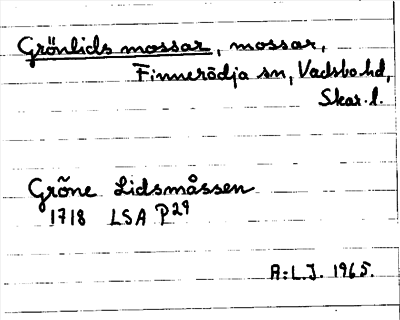 Grönlids mossar, mossar,
Finnerödja sn, Vadsbo hd,
Skar. l.
Grõne Lidsmåssen
1718 LSA P29
A:L.J. 1965.